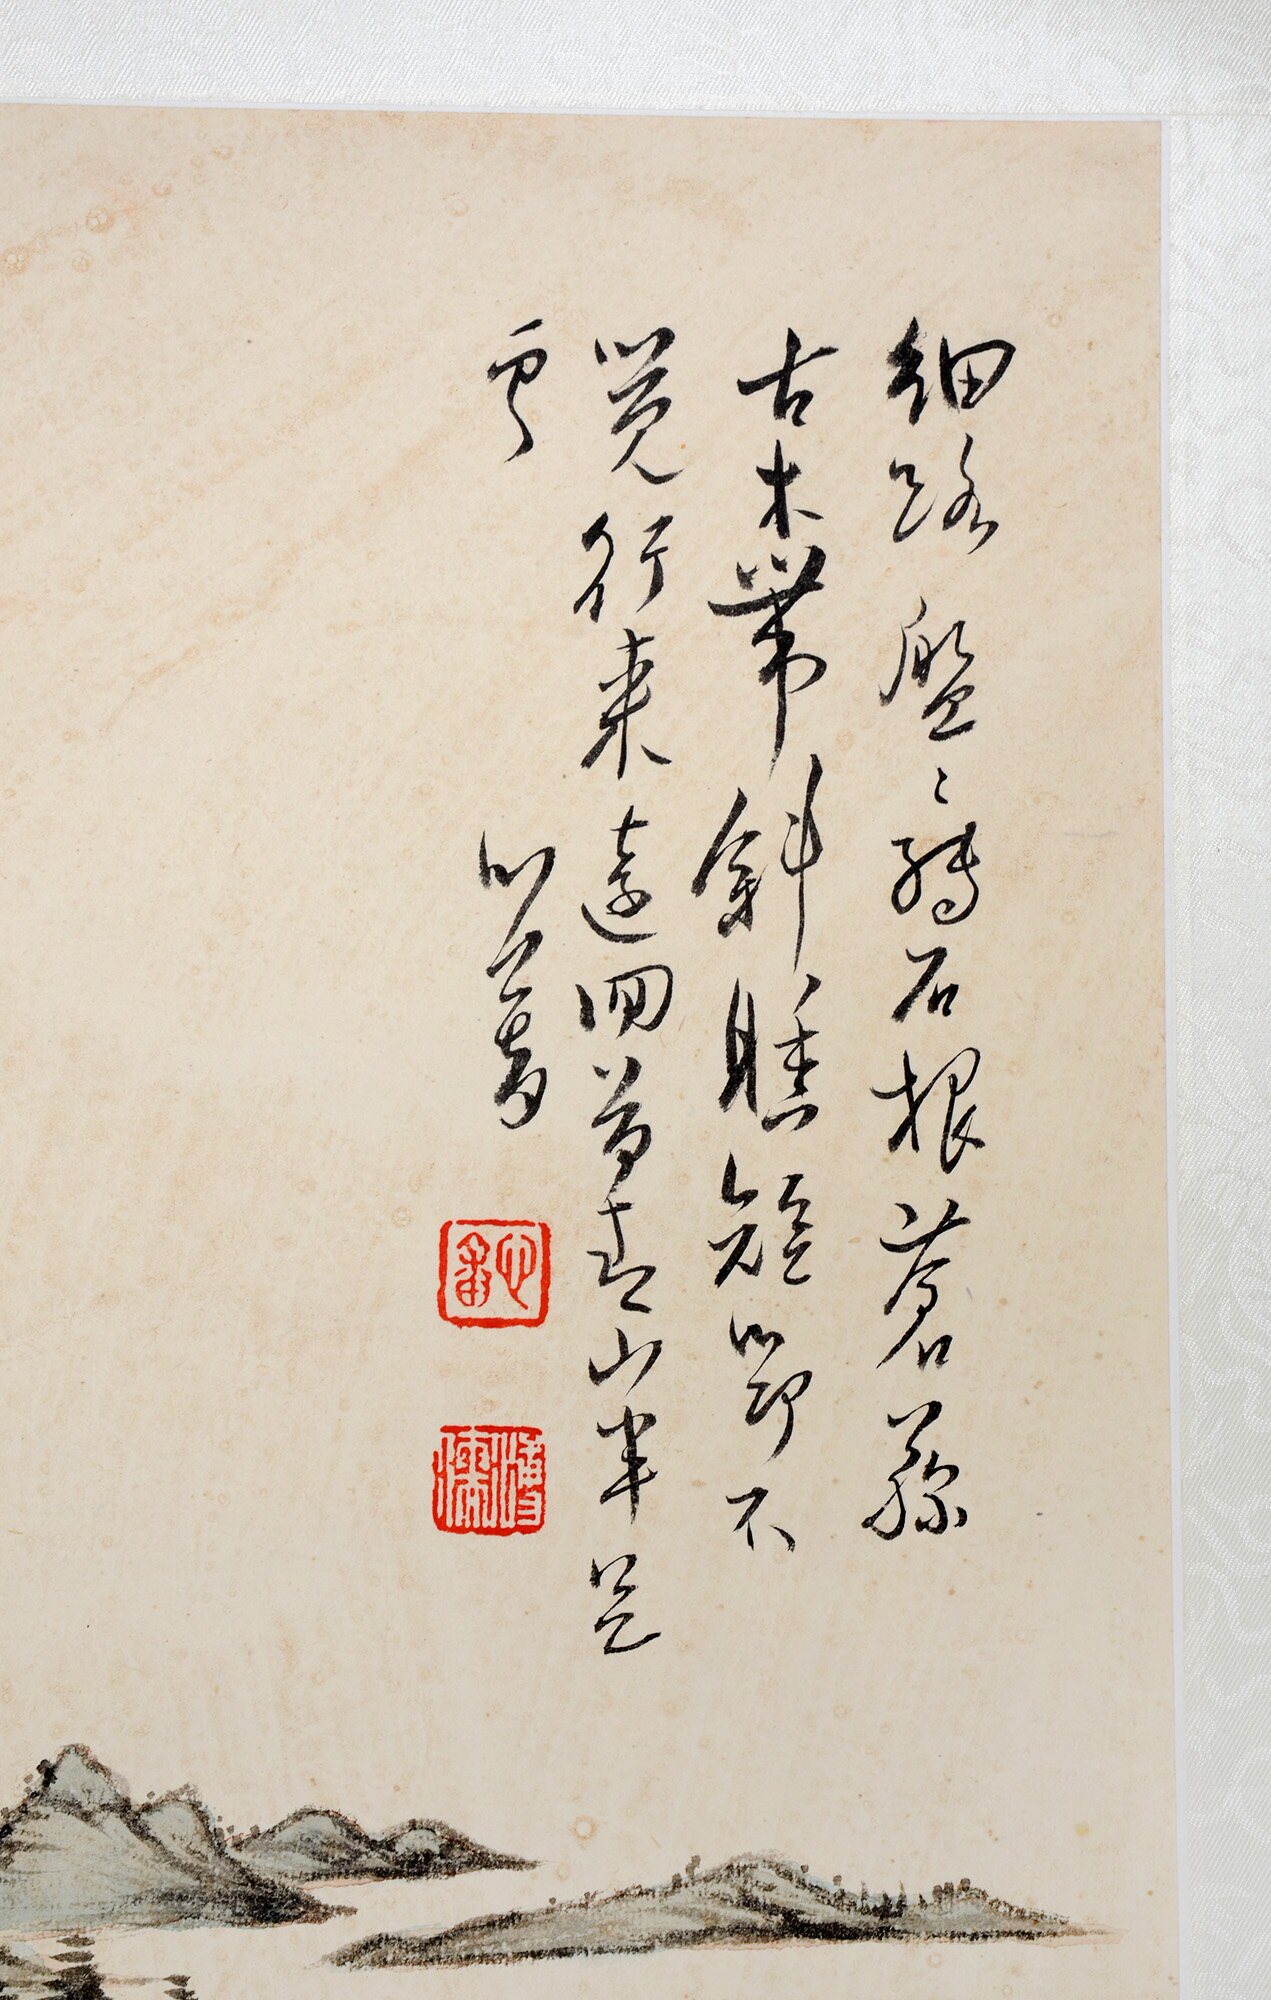 細路盤々轉石根蒼藤
古木帶斜曛短筇不
覺行來遠回首青山半是
雲
心畬
溥儒